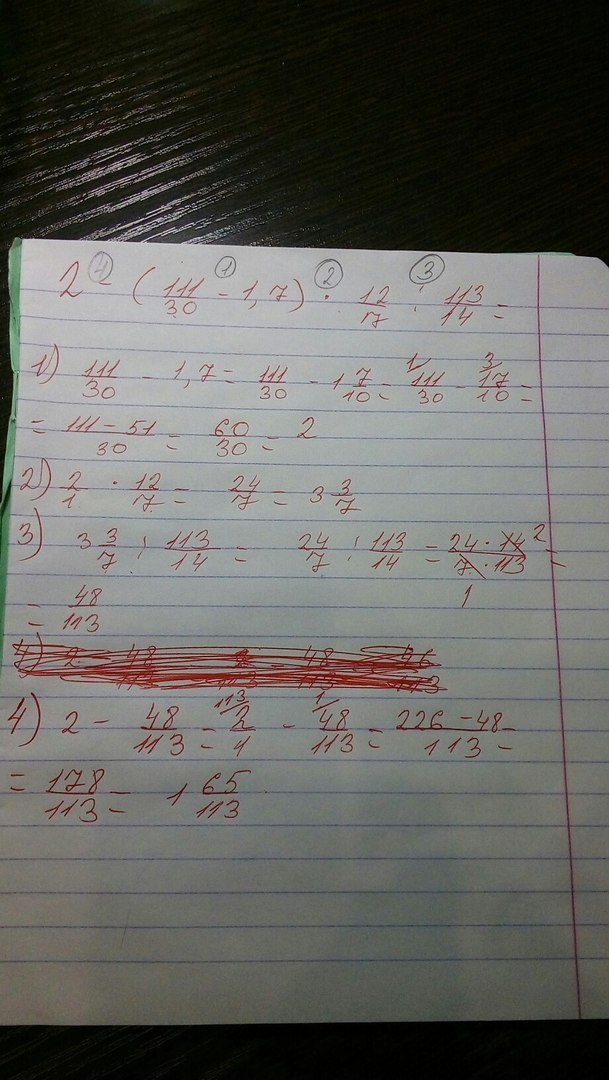 ④ ① ② ③
2 - (111/30 - 1,7) · 12/7 : 113/14 =
1) 111/30 - 1,7 = 111/30 - 1 7/10 = 1/ 111/30 - 3/ 17/10 =
= 111 - 51/30 = 60/30 = 2
2) 2/1 · 12/7 = 24/7 = 3 3/7
3) 3 3/7 : 113/14 = 24/7 : 113/14 = 24 · 14 2/7 · 113 =
1
= 48/113
4) 2 - 48/113 = 113/ 2/1 - 1/ 48/113 = 226 - 48/113 =
= 178/113 = 1 65/113